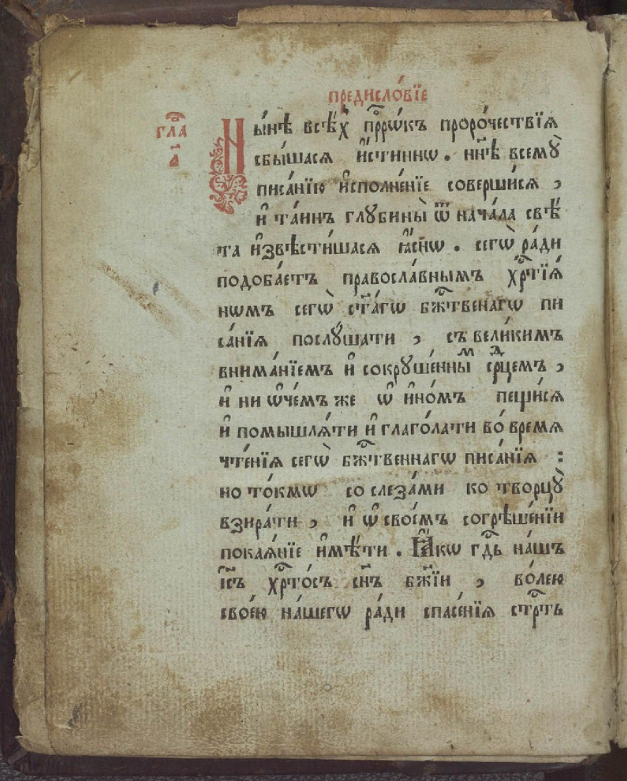 предисло́вїе
гла̑
а҃
Ны́нѣ всѣ́хъ прⷪ҇рѡкъ проро́чествїѧ
сбы́шасѧ и҆́стиннѡ . нн҃ѣ всемꙋ̀
писа́нїю и҆сполне́нїе соверши́сѧ ,
и҆ та́инъ глꙋбины̀ ѿ нача́ла свѣ́
та и҆звѣсти́шасѧ ꙗ҆́снѡ . сегѡ̀ ра́ди
подоба́етъ правосла́внымъ хрⷭ҇тїѧ́
нѡмъ сегѡ̀ ст҃а́гѡ бж҃тⷭ҇венагѡ пи
са́нїѧ послꙋ́шати , съ вели́кимъ
внима́нїемъ и҆ сокрꙋше́ннымъ срⷣцемъ ,
и҆ ни ѡ҆че́мъ же ѡ҆ и҆но́мъ пещи́сѧ
и҆ помышлѧ́ти и҆ глаго́лати во́ времѧ
чте́нїѧ сегѡ̀ бжⷭ҇твеннагѡ писа́нїѧ :
но то́кмѡ со слеза́ми ко творцꙋ̀
взира́ти , и҆ ѡ҆ свое́мъ согрѣше́нїи
покаѧ́нїе и҆мѣ́ти . Ꙗ҆́кѡ гдⷭ҇ь на́шъ
і҆с҃ъ хрⷭ҇то́съ сн҃ъ бж҃їи , во́лею
свое́ю на́шегѡ ра́ди спасе́нїѧ стрⷭ҇ть